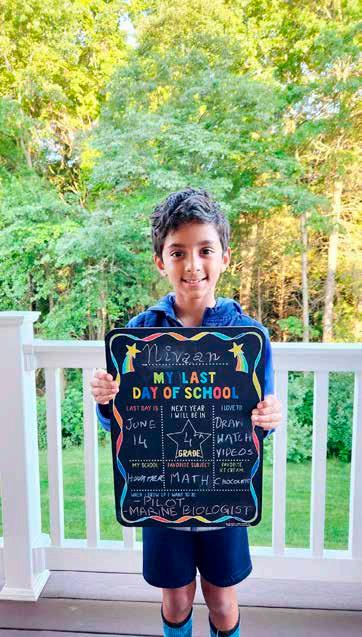 Nivaan
MY LAST
DAY OF SCHOOL
LAST DAY IS
JUNE
14
NEXT YEAR
I WILL BE IN
4
GRADE
I LOVE TO
DRAW
WATCH
VIDEOS
MY SCHOOL
FAVORITE SUBJECT
MATH
FAVORITE
ICE CREAM
CHOCOLATE
WHEN I GROW UP I WANT TO BE
-PILOT
-MARINE BIOLOGIST